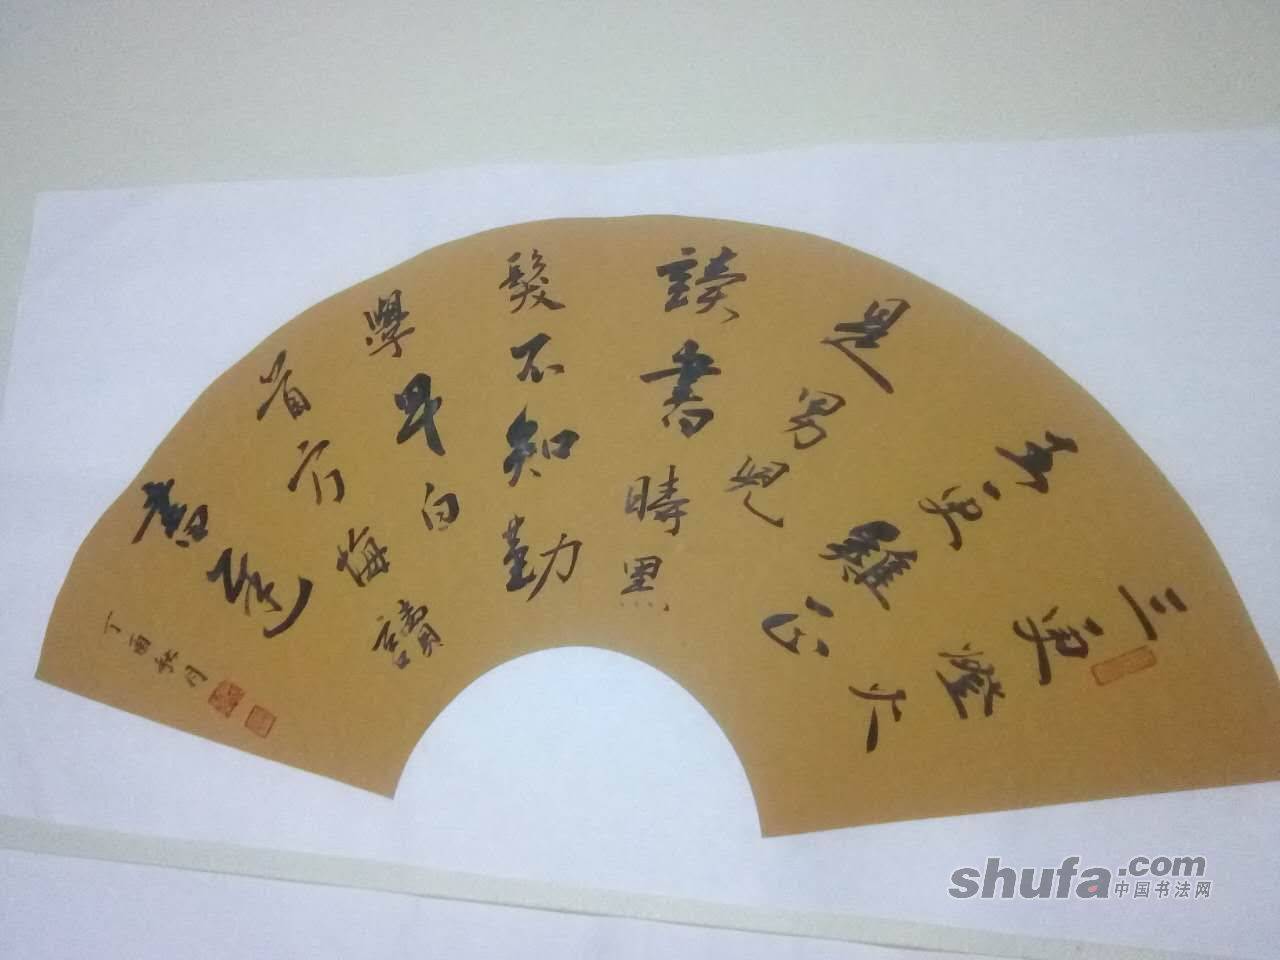 三更燈火
五更雞正
是男兒
讀書時黑
髮不知勤
學早白
首方悔讀
書遲
丁酉秋月
shufa.com
中国书法网